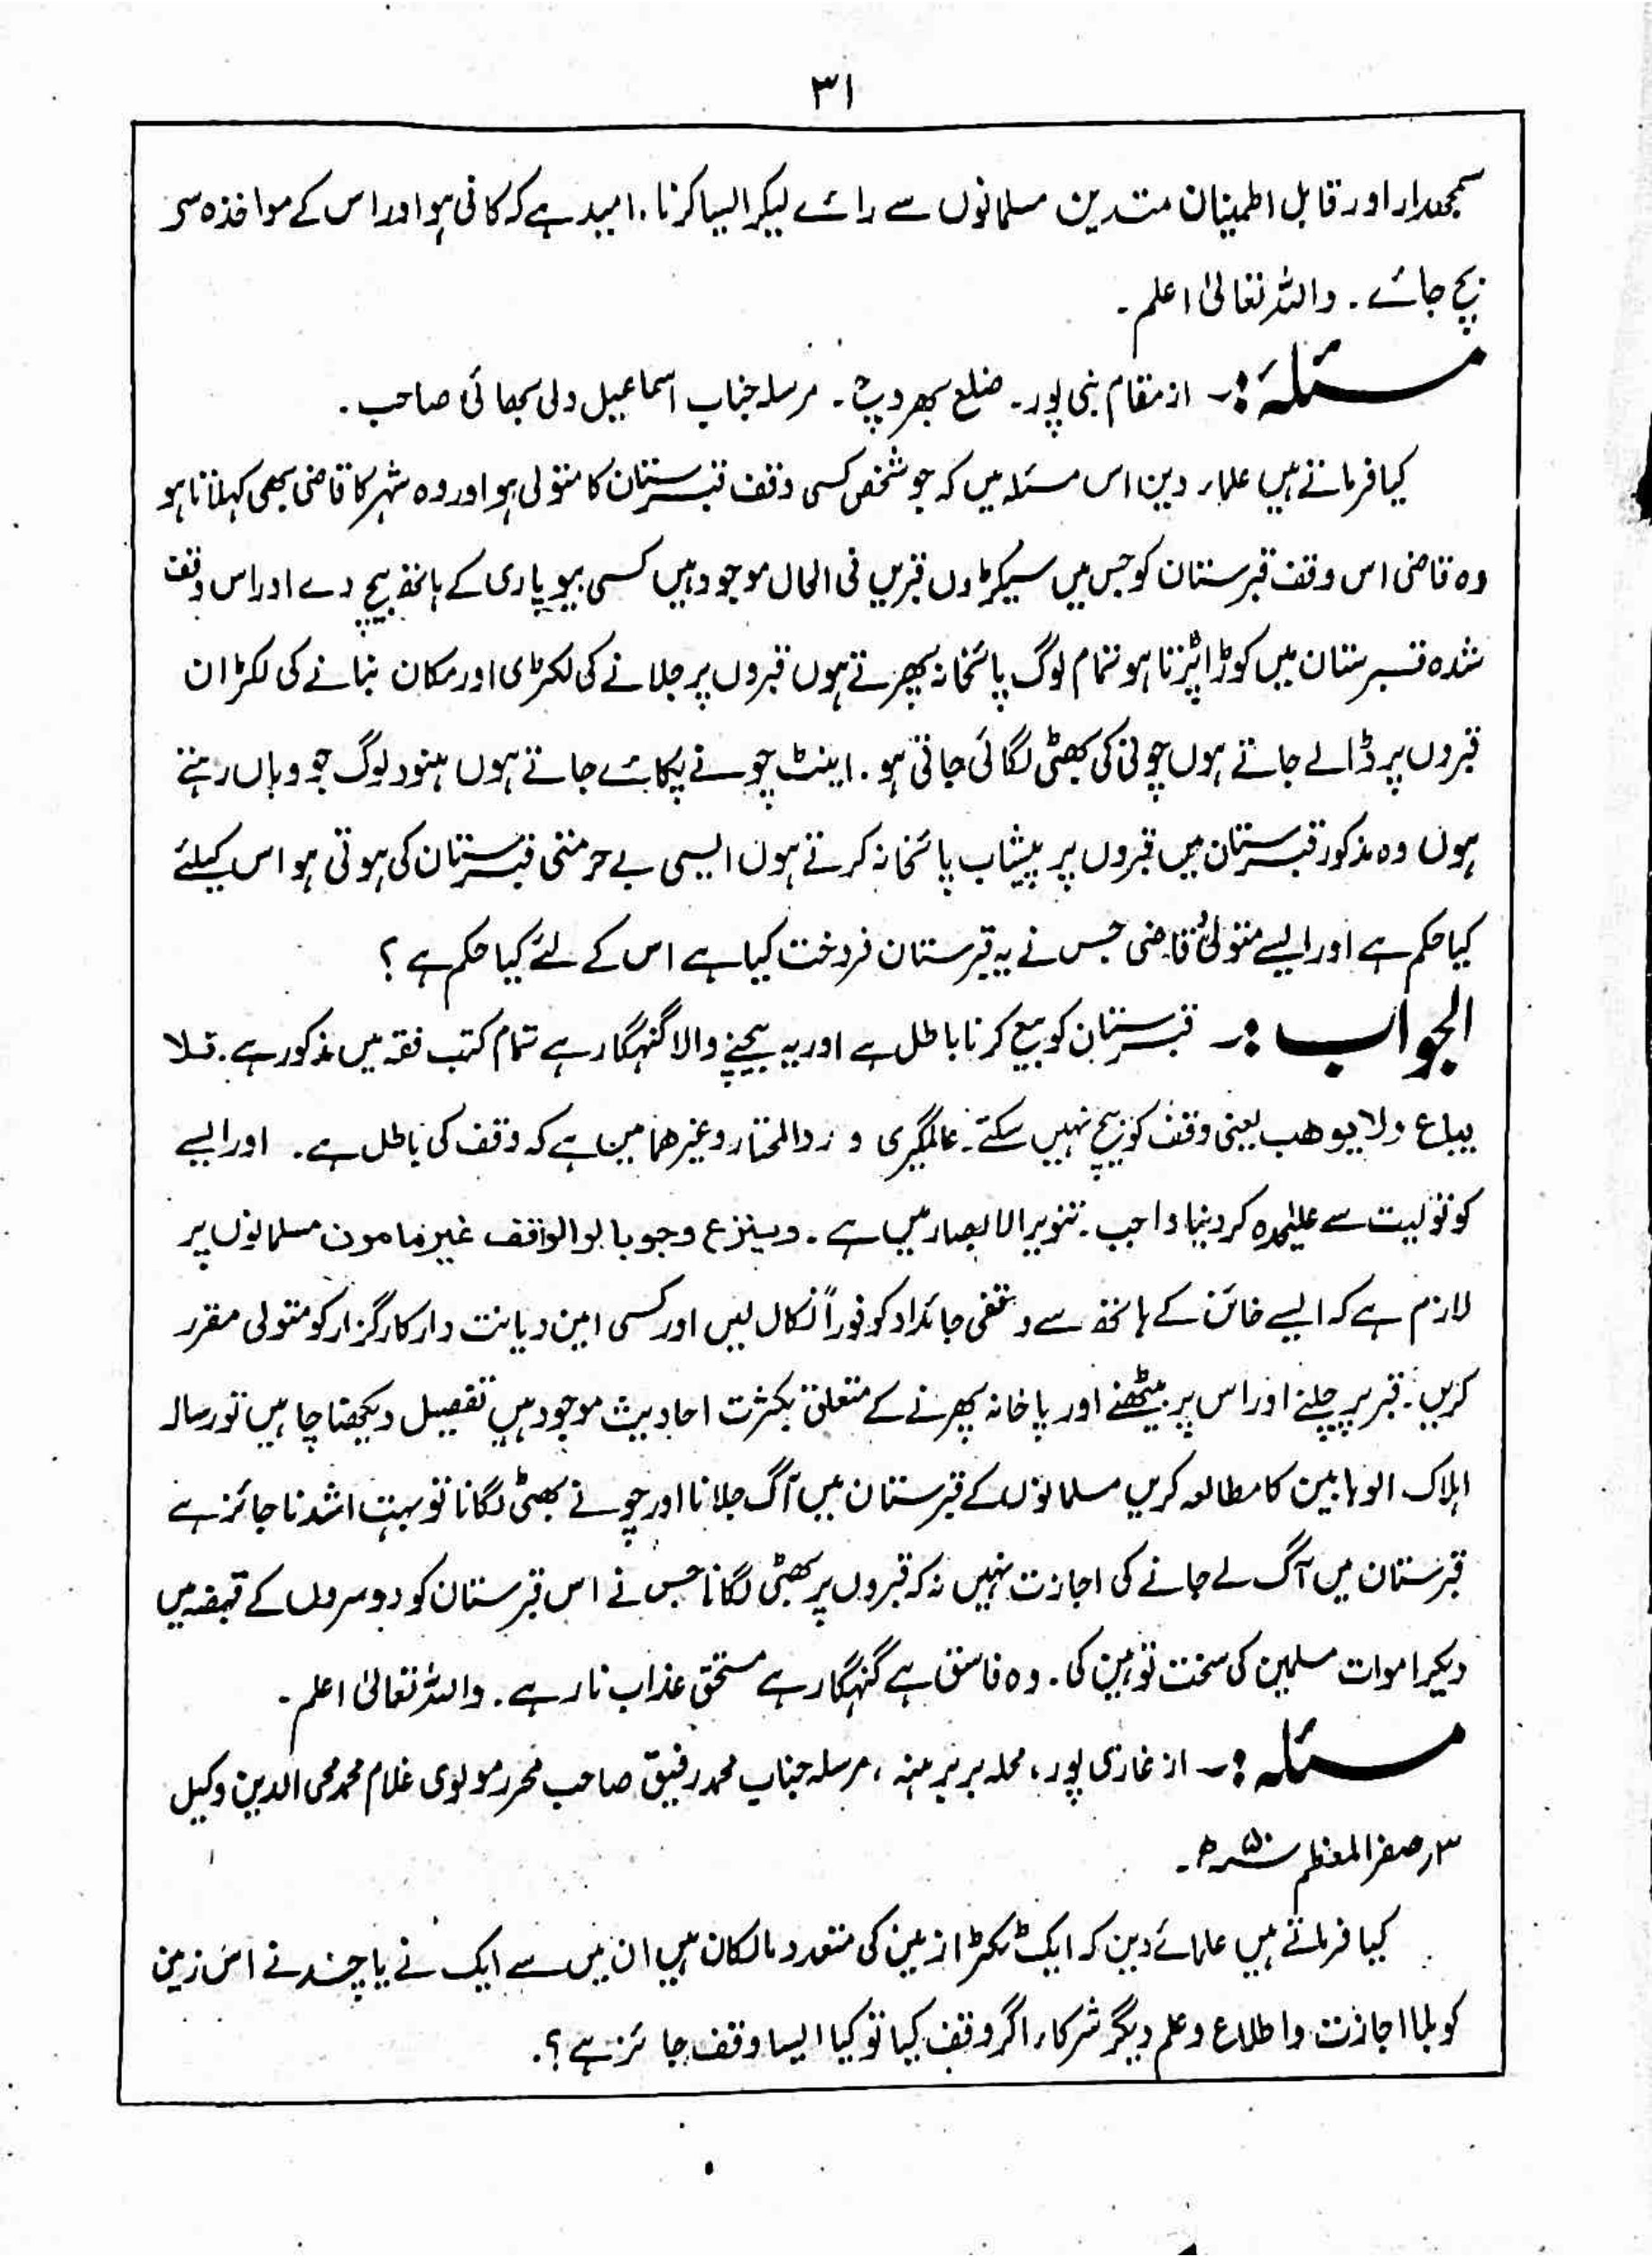 ۳۱
سمجھدار اور قابل اطمینان متدین مسلمانوں سے رائے لیکر ایسا کرنا، امید ہے کہ کافی ہو اور اس کے مواخذہ سے
بچ جائے۔ واللہ تعالیٰ اعلم۔
مسئلہ:۔ از مقام بنی پور۔ ضلع بھروچ۔ مرسلہ جناب اسماعیل ولی بھائی صاحب۔
کیا فرماتے ہیں علماء دین اس مسئلہ میں کہ جو شخص کسی وقف قبرستان کا متولی ہو اور وہ شہر کا قاضی بھی کہلاتا ہو
وہ قاضی اس وقف قبرستان کو جس میں سیکڑوں قبریں فی الحال موجود ہیں کسی بیوپاری کے ہاتھ بیچ دے اور اس وقف
شدہ قبرستان میں کوڑا پڑتا ہو تمام لوگ پائخانہ پھرتے ہوں قبروں پر جلانے کی لکڑی اور مکان بنانے کی لکڑ ان
قبروں پر ڈالے جاتے ہوں چونی کی بھٹی لگائی جاتی ہو۔ اینٹ چونے پکائے جاتے ہوں ہنود لوگ جو وہاں رہتے
ہوں وہ مذکور قبرستان میں قبروں پر پیشاب پائخانہ کرتے ہوں ایسی بے حرمتی قبرستان کی ہوتی ہو اس کیلئے
کیا حکم ہے اور ایسے متولی قاضی جس نے یہ قبرستان فروخت کیا ہے اس کے لئے کیا حکم ہے؟
الجواب:۔ قبرستان کو بیع کرنا باطل ہے اور یہ بیچنے والا گنہگار ہے تمام کتب فقہ میں مذکور ہے۔ فلا
یباع ولا یوھب یعنی وقف کو بیچ نہیں سکتے۔ عالمگیری و ردالمختار وغیرھما میں ہے کہ وقف کی باطل ہے۔ اور ایسے
کو تولیت سے علیٰحدہ کر دینا واجب۔ تنویر الابصار میں ہے۔ وینزع وجوبا لو الواقف غیر مامون مسلمانوں پر
لازم ہے کہ ایسے خائن کے ہاتھ سے وقفی جائداد کو فوراً نکال لیں اور کسی امین دیانت دار کارگزار کو متولی مقرر
کریں۔ قبر پر چلنے اور اس پر بیٹھنے اور پاخانہ پھرنے کے متعلق بکثرت احادیث موجود ہیں تفصیل دیکھنا چاہیں تو رسالہ
اہلاک الوہابین کا مطالعہ کریں مسلمانوں کے قبرستان میں آگ جلانا اور چونے بھٹی لگانا تو بہت اشد ناجائز ہے
قبرستان میں آگ لے جانے کی اجازت نہیں نہ کہ قبروں پر بھٹی لگانا جس نے اس قبرستان کو دوسروں کے قبضہ میں
دیکر اموات مسلمین کی سخت توہین کی۔ وہ فاسق ہے گنہگار ہے مستحق عذاب نار ہے۔ واللہ تعالیٰ اعلم۔
مسئلہ:۔ از غازی پور، محلہ، مرسلہ جناب محمد رفیق صاحب محرر مولوی غلام محمد محی الدین وکیل
۳؍ صفر المعظم ۵۰ھ۔
کیا فرماتے ہیں علمائے دین کہ ایک ٹکڑا زمین کی متعدد مالکان ہیں ان میں سے ایک نے یا چند نے اس زمین
کو بلا اجازت واطلاع وعلم دیگر شرکاء اگر وقف کیا تو کیا ایسا وقف جائز ہے؟۔